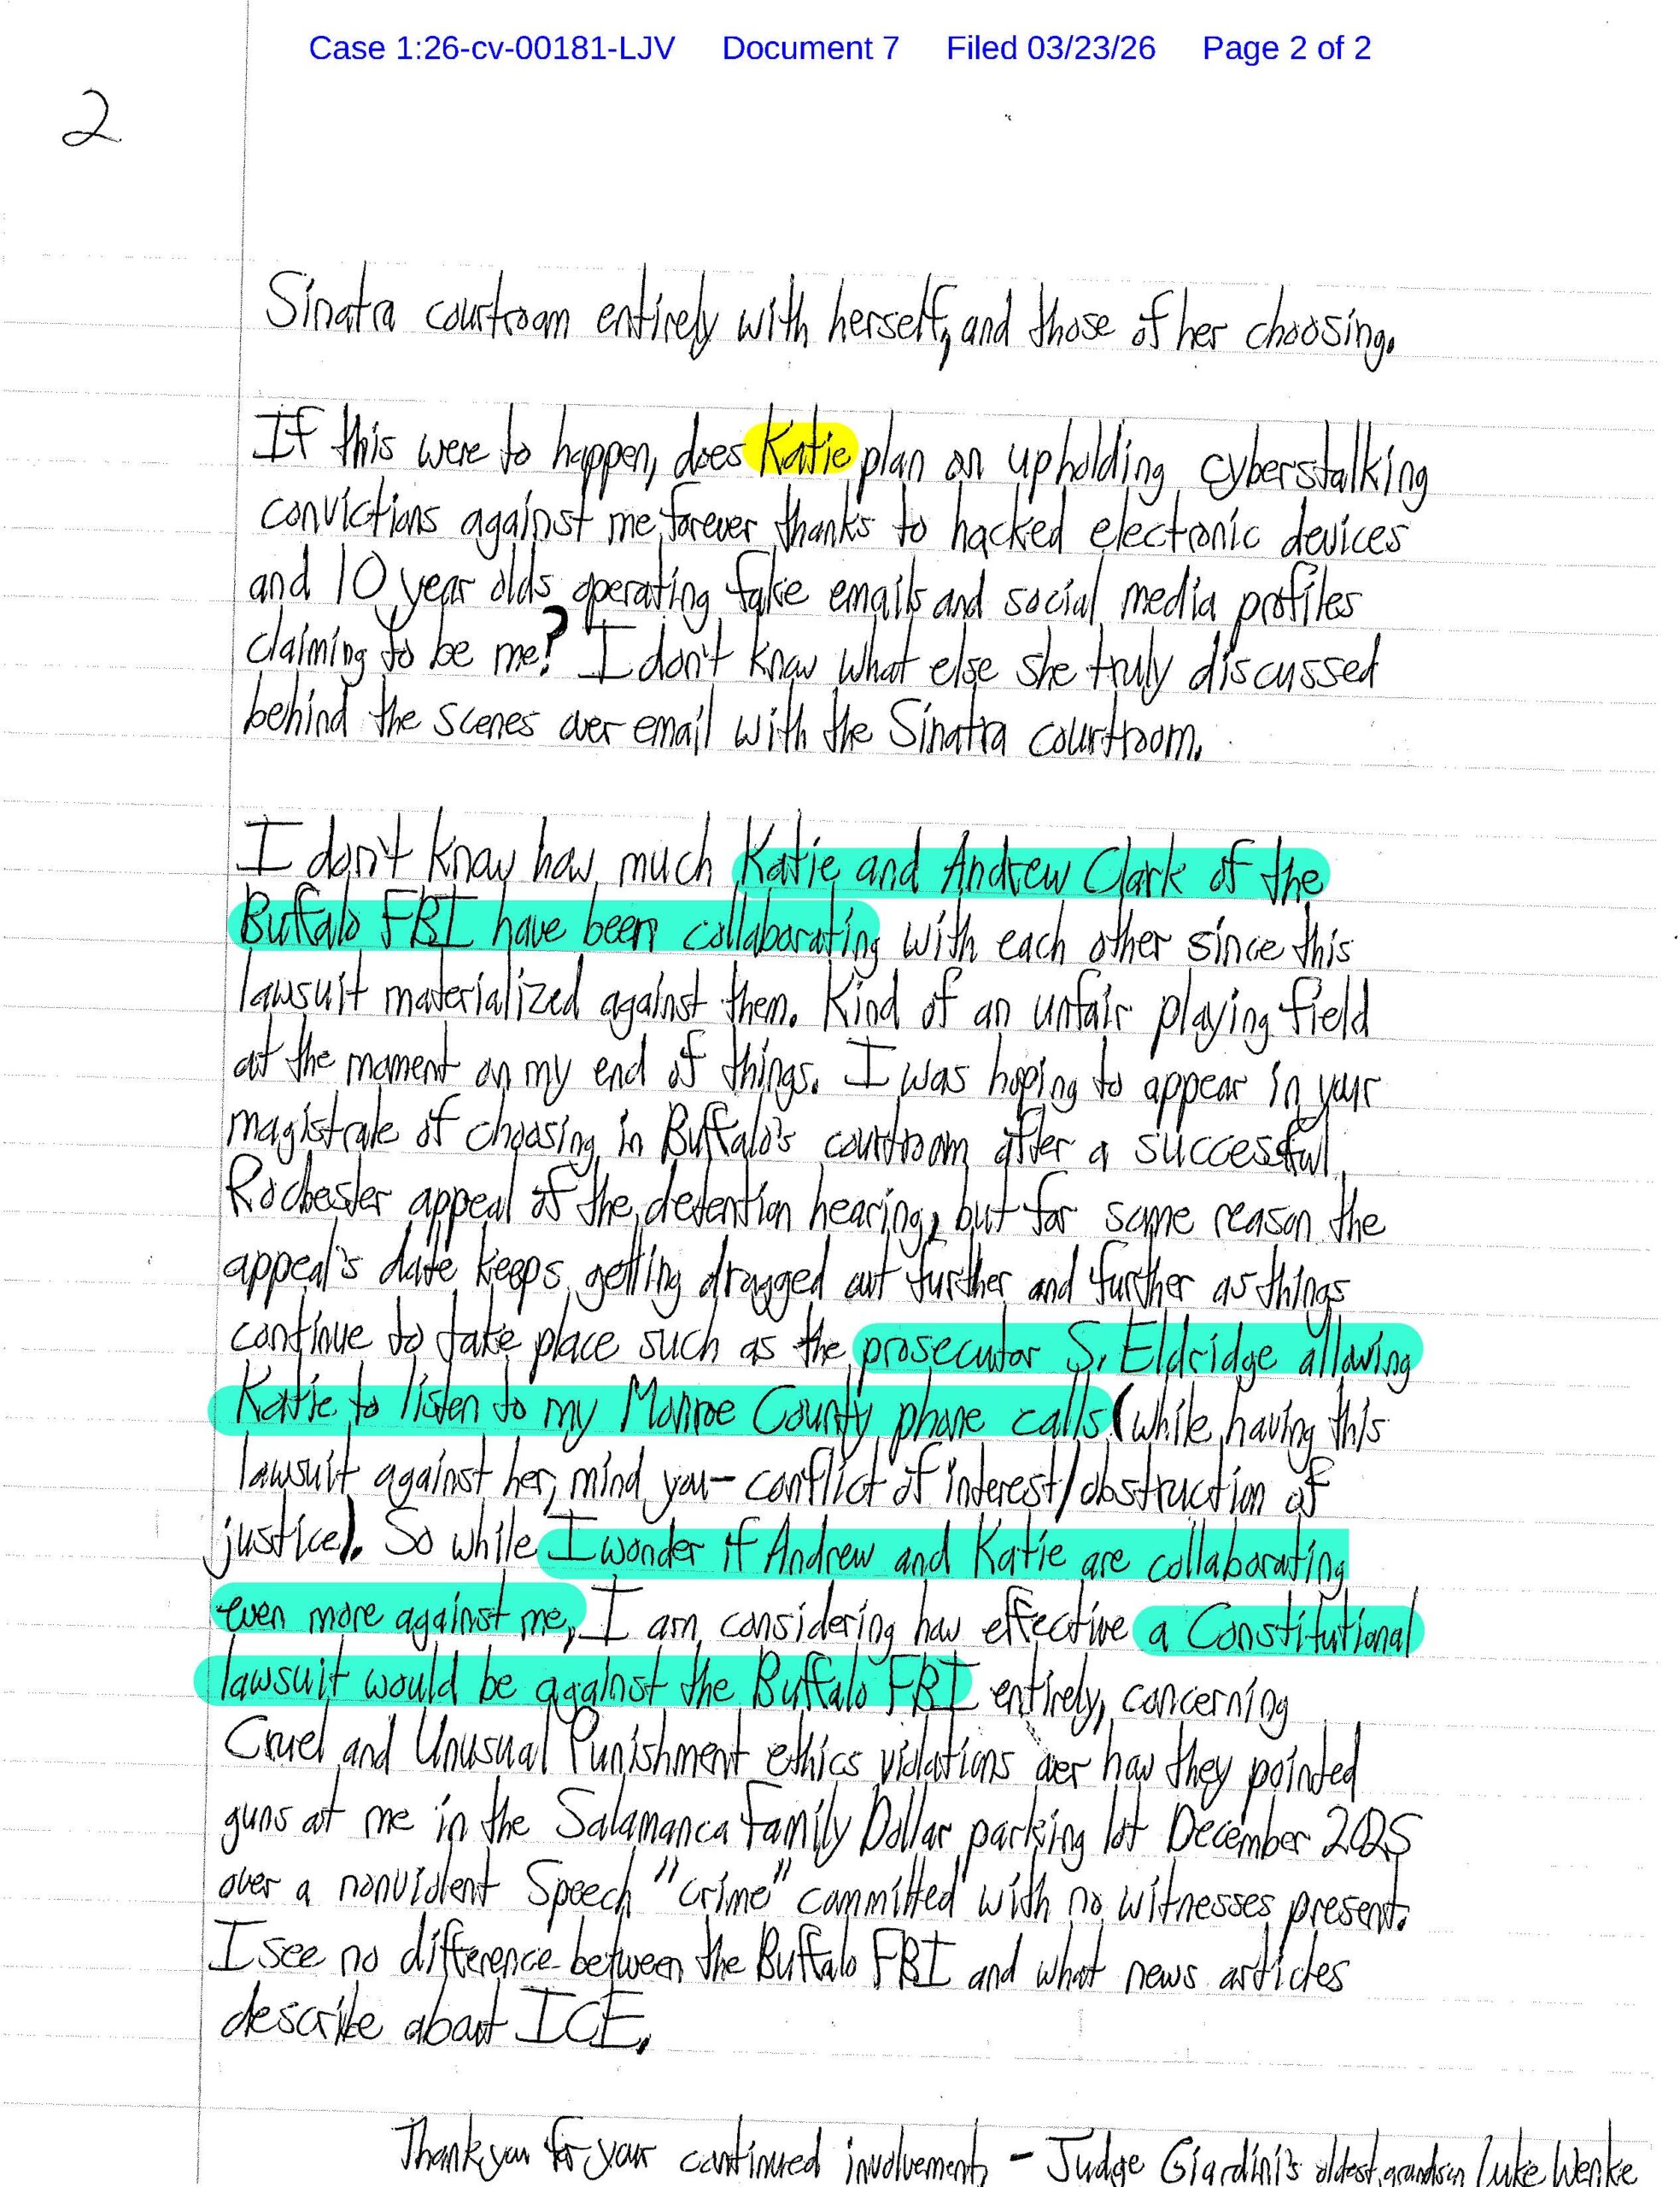 Case 1:26-cv-00181-LJV Document 7 Filed 03/23/26 Page 2 of 2
2
Sinatra courtroom entirely with herself, and those of her choosing.
If this were to happen, does Katie plan on upholding cyberstalking
convictions against me forever thanks to hacked electronic devices
and 10 year olds operating fake emails and social media profiles
claiming to be me? I don't know what else she truly discussed
behind the scenes over email with the Sinatra courtroom.
I don't know how much Katie and Andrew Clark of the
Buffalo FBI have been collaborating with each other since this
lawsuit materialized against them. Kind of an unfair playing field
at the moment on my end of things. I was hoping to appear in your
magistrate of choosing in Buffalo's courtroom after a successful
Rochester appeal of the detention hearing, but for some reason the
appeal's date keeps getting dragged out further and further as things
continue to take place such as the prosecutor S. Eldridge allowing
Katie to listen to my Monroe County phone calls (while having this
lawsuit against her, mind you- conflict of interest/obstruction of
justice). So while I wonder if Andrew and Katie are collaborating
even more against me, I am considering how effective a Constitutional
lawsuit would be against the Buffalo FBI entirely, concerning
Cruel and Unusual Punishment ethics violations over how they pointed
guns at me in the Salamanca Family Dollar parking lot December 2025
over a nonviolent Speech "crime" committed with no witnesses present.
I see no difference between the Buffalo FBI and what news articles
describe about ICE.
Thank you for your continued involvement, - Judge Giardini's oldest grandson Luke Wenke